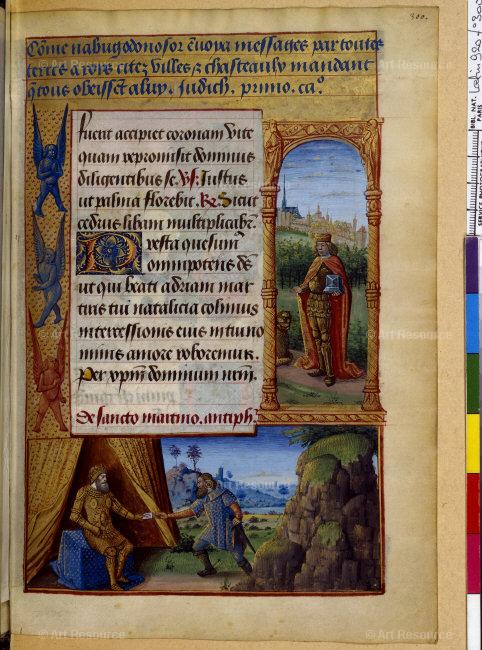 300.
Cõme nabugodonosor ẽuoya messages par toutes
terres a rois citez villes & chasteaulx mandant
q̃ tous obeissẽt a luy. Judich. primo. ca°
fuerit accipiet coronam vite
quam repromisit dominus
diligentibus se. Vs. Iustus
ut palma florebit. R. Sicut
cedrus libani multiplicabr̃.
Presta quesum̃
omnipotens ds̃
ut qui beati adriani mar
tiris tui natalicia colimus
intercessionis eius in tui no
minis amore roboremur.
Per xp̃m dominum nrm̃.
de sancto martino. antiph̃.
BIBL. NAT. PARIS
Latin 920 f° 300
© Art Resource
© Art Resource
© Art Resource
© Art Resource